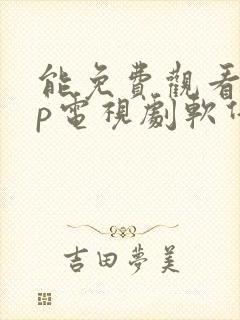 能免費觀看
p電視劇軟件
吉田夢美